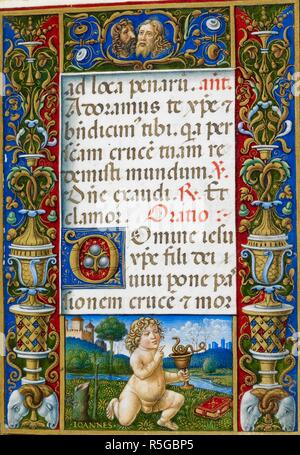 ad loca penarū. añt.
Adoramus te xp̄e ⁊
bn̄dicim⁹ tibi. q̄a per
s̄cam crucē tuam re
demisti mundum. ℣.
Dn̄e exaudi. ℟. Et
clamor. Oratio
Domine iesu
xp̄e fili dei
uiui pone pa
ssionem crucē ⁊ mor
IOANNES
alamy
R5GBP5